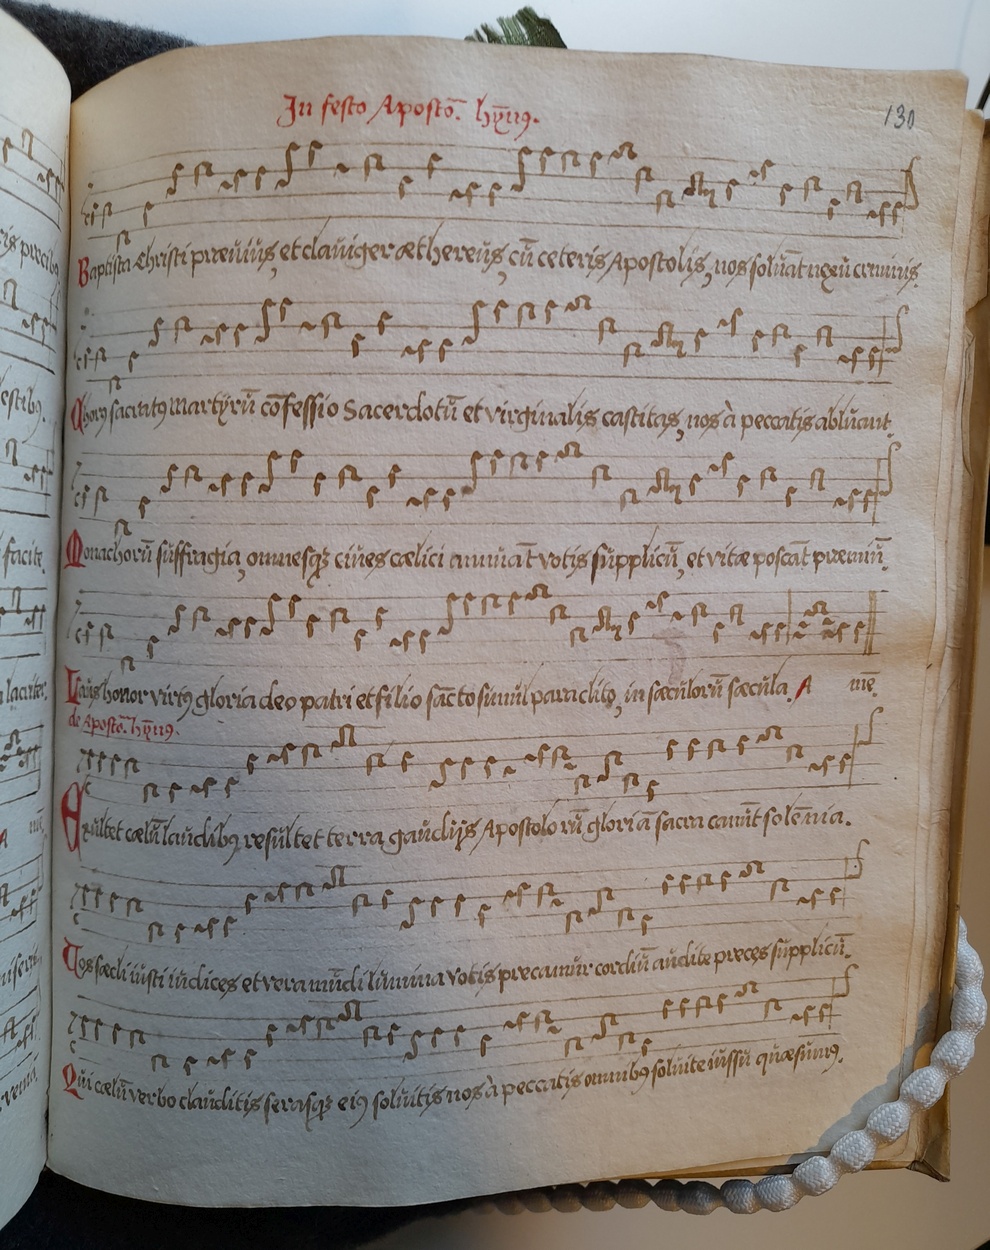 130
In festo Apostō. hȳnꝯ.
Baptista Christi præuiüs, et clauiger æthereüs, cū ceteris Apostolis, nos soluāt nexu criminis.
Chorꝯ sacratꝯ Martÿrū cōfessio Sacerdotū et virginalis castitas, nos à peccatis ablüant.
Monachorū süffragia, omnesqꝫ ciues cælici annuāt votis süpplicū, et vitæ poscāt præmiū.
Laüs honor virtüs gloria deo patri et filio sācto simül paraclito, in sæcülorū sæcula. A mē.
de Apostō. hȳnꝯ.
Exültet cælū laudibꝯ resültet terra gaüdijs Apostolorū gloriā sacra canūt solēnia.
Vos sæcli iüsti iüdices et vera mūdi lümina votis precamür cordiū aüdite preces süpplicū.
Qui cælū verbo claüditis serasqꝫ eiꝯ solüitis nos à peccatis omnibꝯ solüite iüssü quæsümꝯ.
estibꝯ.
facite.